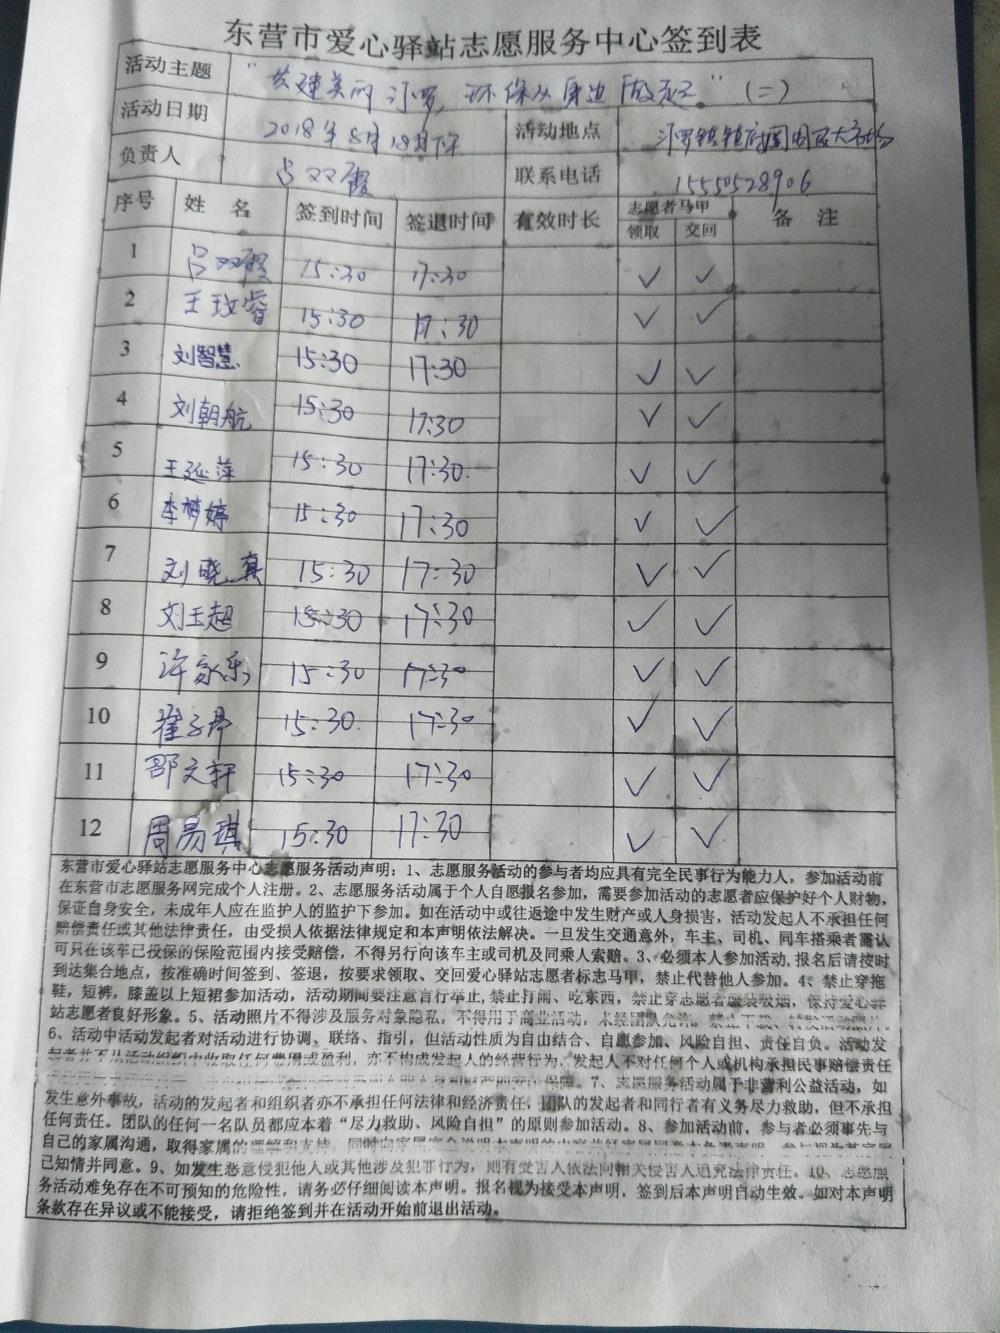 东营市爱心驿站志愿服务中心签到表
活动主题 "共建美丽汀罗,环保从身边做起"(二)
活动日期 2018年8月18日下午 活动地点 汀罗镇镇府周围及大市场
负责人 吕双霞 联系电话 15550528906
序号 姓 名 签到时间 签退时间 有效时长 志愿者马甲 备 注
领取 交回
1 吕双霞 15:30 17:30 ✓ ✓
2 王玫睿 15:30 17:30 ✓ ✓
3 刘智慧 15:30 17:30 ✓ ✓
4 刘朝航 15:30 17:30 ✓ ✓
5 王延萍 15:30 17:30 ✓ ✓
6 李梦婷 15:30 17:30 ✓ ✓
7 刘晓真 15:30 17:30 ✓ ✓
8 刘玉超 15:30 17:30 ✓ ✓
9 许家乐 15:30 17:30 ✓ ✓
10 崔子 15:30 17:30 ✓ ✓
11 邵文轩 15:30 17:30 ✓ ✓
12 周易琪 15:30 17:30 ✓ ✓
东营市爱心驿站志愿服务中心志愿服务活动声明:1、志愿服务活动的参与者均应具有完全民事行为能力人,参加活动前
在东营市志愿服务网完成个人注册。2、志愿服务活动属于个人自愿报名参加,需要参加活动的志愿者应保护好个人财物,
保证自身安全,未成年人应在监护人的监护下参加。如在活动中或往返途中发生财产或人身损害,活动发起人不承担任何
赔偿责任或其他法律责任,由受损人依据法律规定和本声明依法解决。一旦发生交通意外,车主、司机、同车搭乘者需认
可只在该车已投保的保险范围内接受赔偿,不得另行向该车主或司机及同乘人索赔。3、必须本人参加活动,报名后请按时
到达集合地点,按准确时间签到、签退,按要求领取、交回爱心驿站志愿者标志马甲,禁止代替他人参加。4、禁止穿拖
鞋,短裤,膝盖以上短裙参加活动,活动期间要注意言行举止,禁止打闹、吃东西,禁止穿志愿者服装吸烟,保持爱心驿
站志愿者良好形象。5、活动照片不得涉及服务对象隐私,不得用于商业活动,未经团队允许,禁止下载、转发活动照片。
6、活动中活动发起者对活动进行协调、联络、指引,但活动性质为自由结合、自愿参加、风险自担、责任自负。活动发
起者并不从活动组织中收取任何费用或盈利,亦不构成发起人的经营行为,发起人不对任何个人或机构承担民事赔偿责任
保障。7、志愿服务活动属于非营利公益活动,如
发生意外事故,活动的发起者和组织者亦不承担任何法律和经济责任,团队的发起者和同行者有义务尽力救助,但不承担
任何责任。团队的任何一名队员都应本着"尽力救助、风险自担"的原则参加活动。8、参加活动前,参与者必须事先与
自己的家属沟通,取得家属的理解和支持,同时向家属完全说明本声明的内容
已知情并同意。9、如发生恶意侵犯他人或其他涉及犯罪行为,则有受害人依法向相关侵害人追究法律责任。10、志愿服
务活动难免存在不可预知的危险性,请务必仔细阅读本声明。报名视为接受本声明,签到后本声明自动生效。如对本声明
条款存在异议或不能接受,请拒绝签到并在活动开始前退出活动。